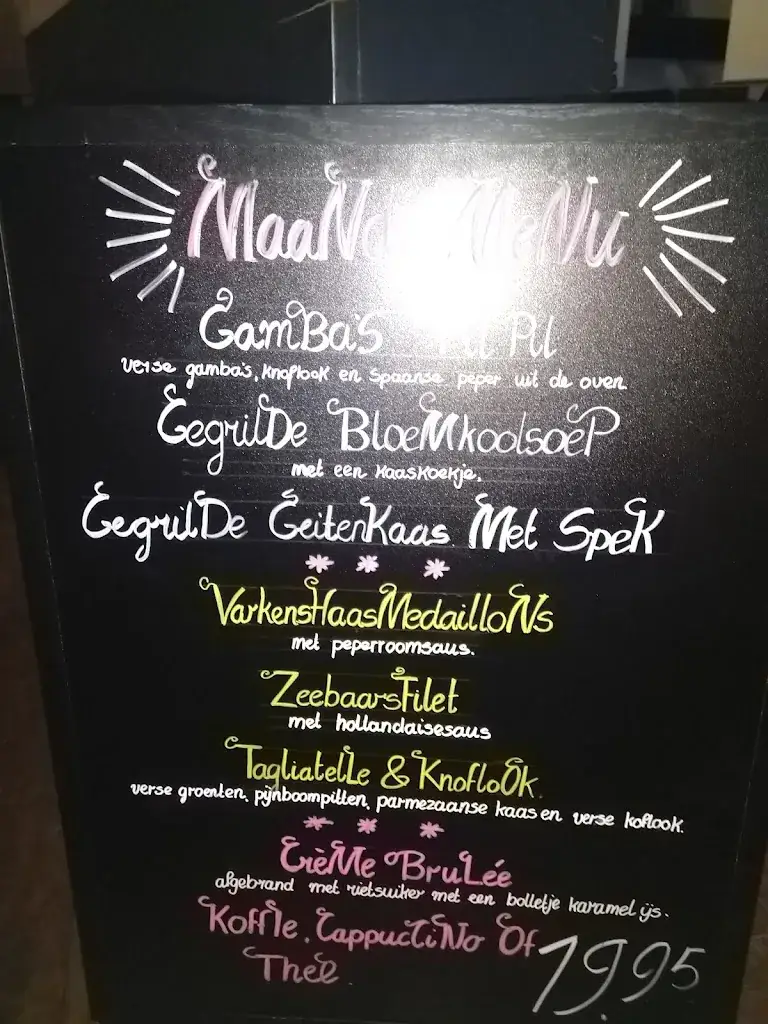 MaaNd MeNu
GamBa's Pil Pil
verse gamba's, knoflook en Spaanse peper uit de oven.
GegrilDe BloeMkoolsoeP
met een kaaskoekje.
GegrilDe GeitenKaas Met SpeK
VarkensHaasMedailloNs
met peperroomsaus.
ZeebaarsFilet
met hollandaisesaus
TagliatelLe & KnofloOk.
verse groenten, pijnboompitten, parmezaanse kaas en verse koflook.
CrèMe BruLée
afgebrand met rietsuiker met een bolletje karamel ijs.
Koffie, CappucCiNo Of
Thee
19,95